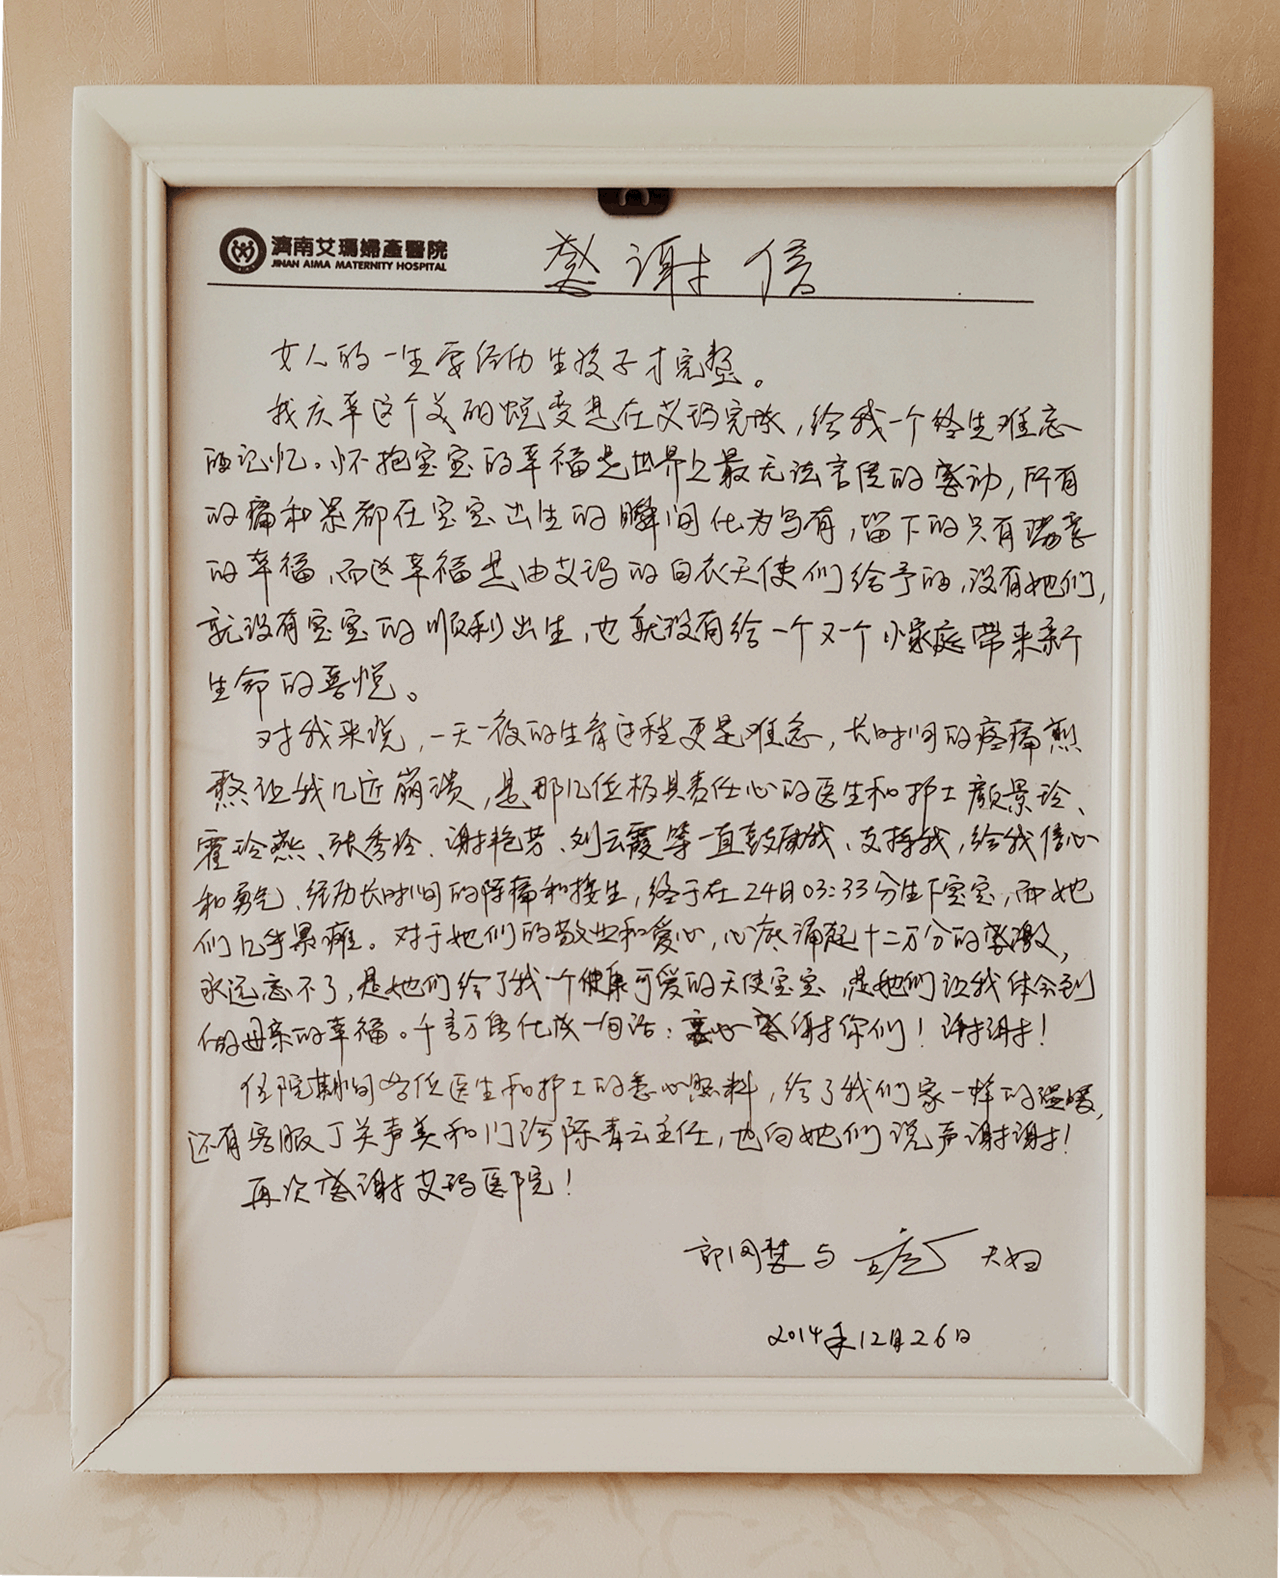 濟南艾瑪婦產醫院
JINAN AIMA MATERNITY HOSPITAL
感谢信
女人的一生要经历生孩子才完整。
我庆幸这个美丽蜕变是在艾玛完成,给我一个终生难忘
的记忆。怀抱宝宝的幸福是世界上最无法言传的感动,所有
的痛和累都在宝宝出生的瞬间化为乌有,留下的只有满意
的幸福,而这幸福是由艾玛的白衣天使们给予的,没有她们,
就没有宝宝的顺利出生,也就没有给一个又一个小家庭带来新
生命的喜悦。
对我来说,一天一夜的生育过程更是难忘,长时间的疼痛煎
熬让我几近崩溃,是那几位极具责任心的医生和护士颜景玲、
霍玲燕、张秀玲、谢艳芳、刘云霞等一直鼓励我、支持我,给我信心
和勇气、经历长时间的阵痛和接生,终于在24日03:33分生下宝宝,而她
们几乎累瘫。对于她们的敬业和爱心,心底涌起十二万分的感激,
永远忘不了,是她们给了我一个健康可爱的天使宝宝,是她们让我体会到
做母亲的幸福。千言万语化成一句话:衷心感谢你们!谢谢!
住院期间各位医生和护士的悉心照料,给了我们家一样的温暖,
还有客服丁关声美和门诊陈青云主任,也向她们说声谢谢!
再次感谢艾玛医院!
郭同慧与 夫妇
2014年12月26日